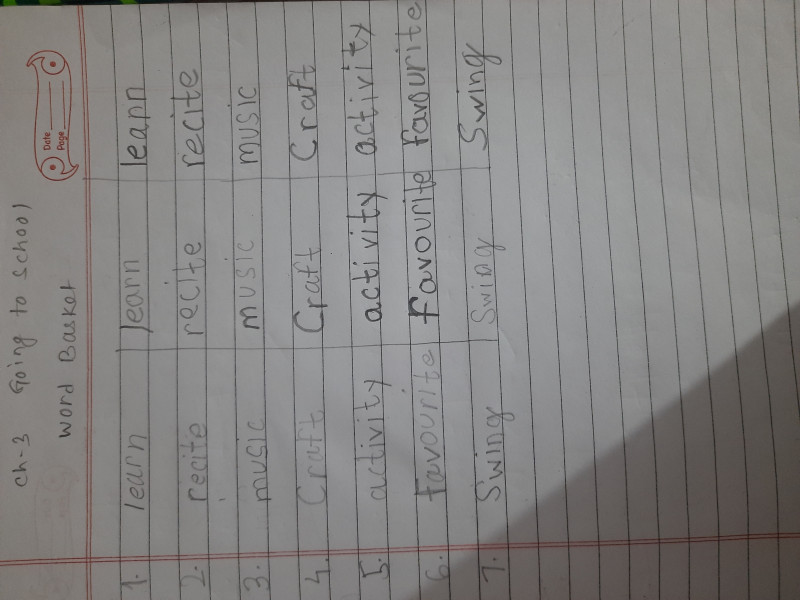 Date
Page
Ch-3 Going to School
Word Basket
1. learn learn learn
2. recite recite recite
3. music music music
4. Craft Craft Craft
5. activity activity activity
6. favourite favourite favourite
7. Swing Swing Swing